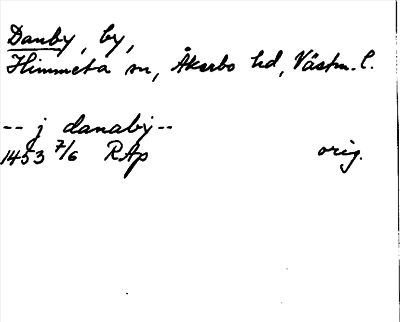 Danby, by,
Himmeta sn, Åkerbo hd, Västm. l.
-- j danaby --
1453 7/6 RAp orig.